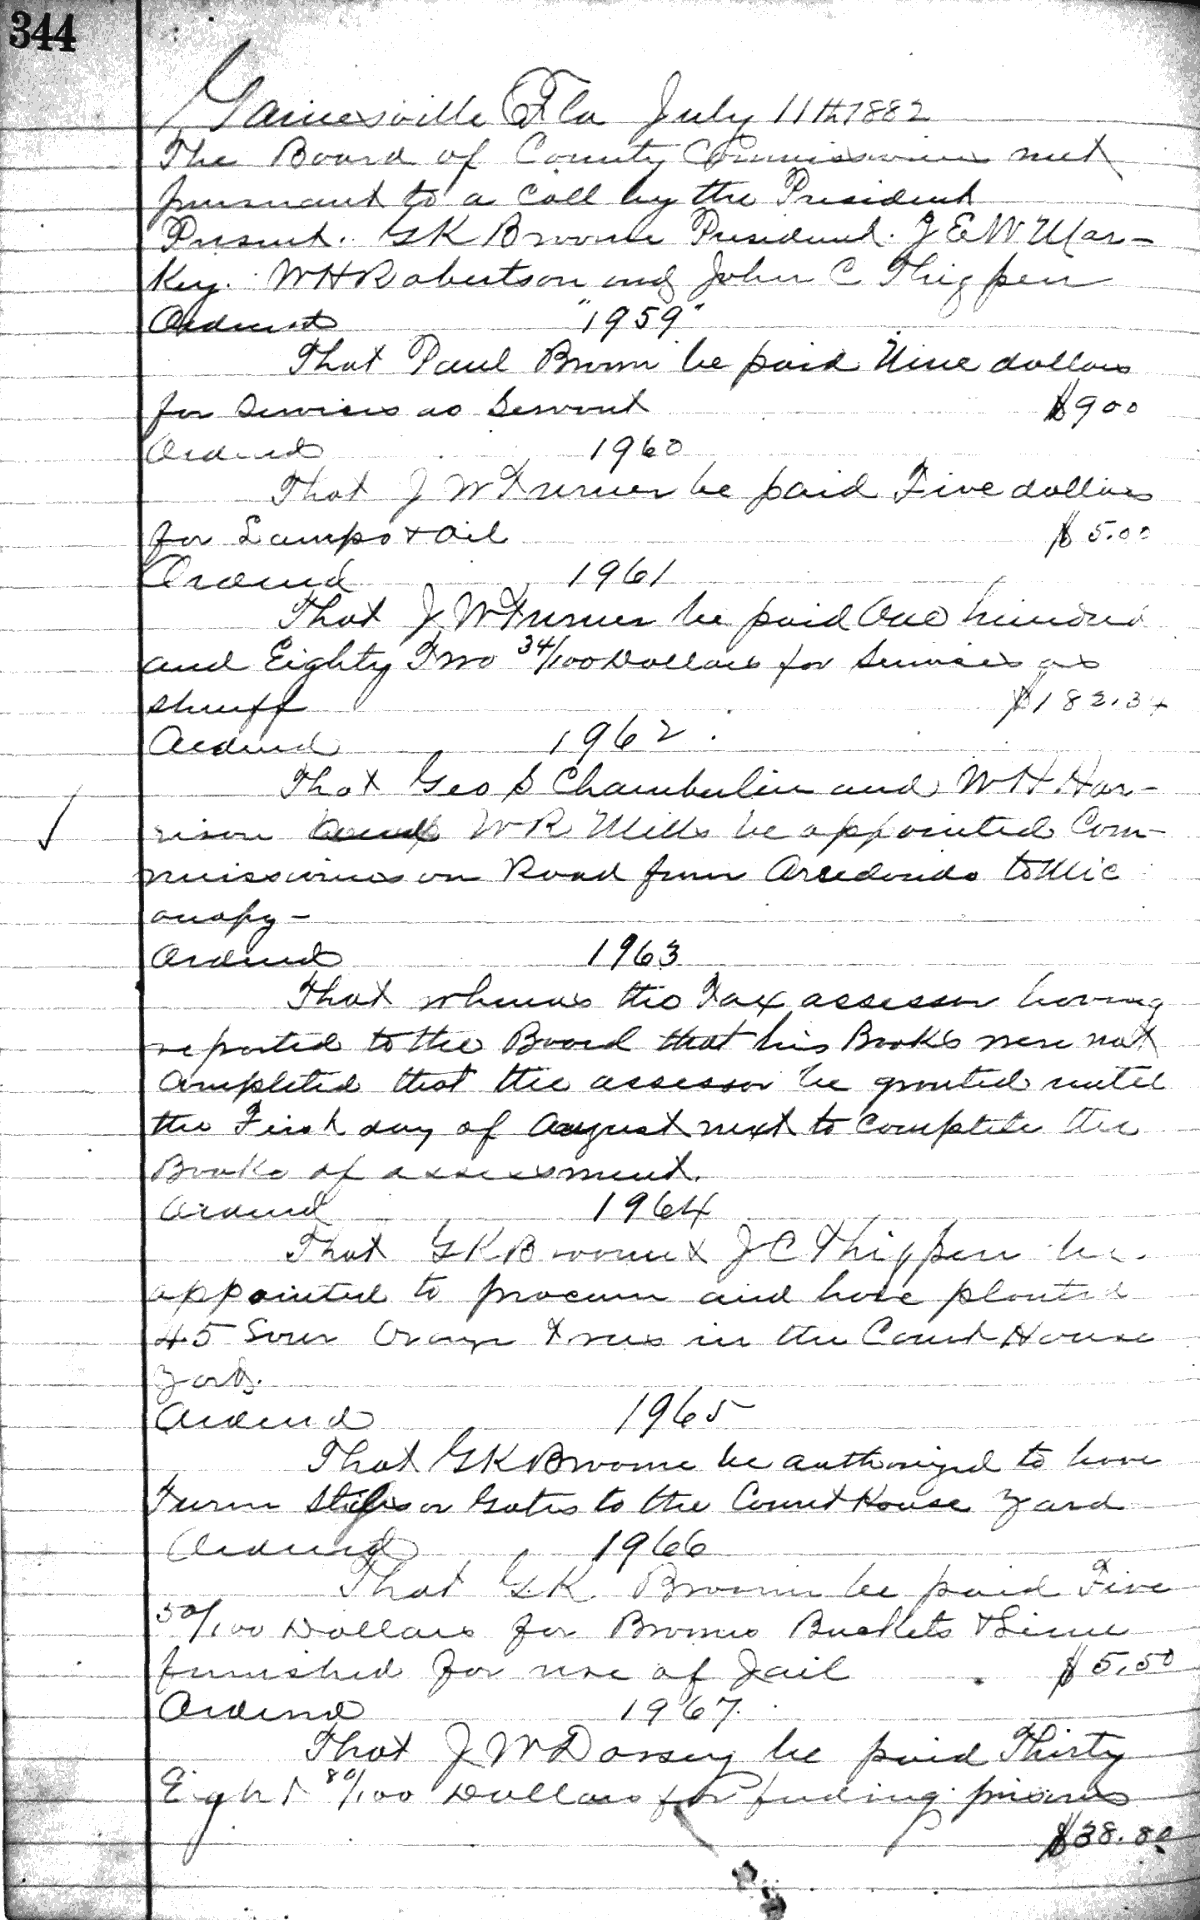 344
Gainesville Fla July 11th 1882
The Board of County Commissioners met
pursuant to a call by the President
Present. GK Broome President. J E W Mar-
key. W H Robertson and John C Thigpen
Ordered "1959"
That Paul Brown be paid Nine dollars
for Services as Servant $9 00
Ordered 1960
That J W Turner be paid Five dollars
for Lamps & Oil $5.00
Ordered 1961
That J. W Turner be paid One hundred
and Eighty Two 34/100 Dollars for Services as
Sheriff $182.34
Ordered 1962.
That Geo S Chamberlin and W H Har-
rison and W R Mills be appointed Com-
missioners on Road from Arredondo to Mic
anopy -
Ordered 1963
That whereas the Tax assessor having
reported to the Board that his Books were not
Completed that the assessor be granted until
the First day of August next to Complete the
Books of assessment.
Ordered 1964
That GK Broome & J C Thigpen be
appointed to procure and have planted
45 Sour Orange Trees in the Court House
Yard.
Ordered 1965
That GK Broome be authorized to have
Turn Stiles or Gates to the Court House Yard
Ordered 1966
That GK Broome be paid Five
50/100 Dollars for Brooms Buckets & Lime
furnished for use of Jail $5.50
Ordered 1967.
That J W Dorsey be paid Thirty
Eight 80/100 Dollars for feeding prisoners
$38.80